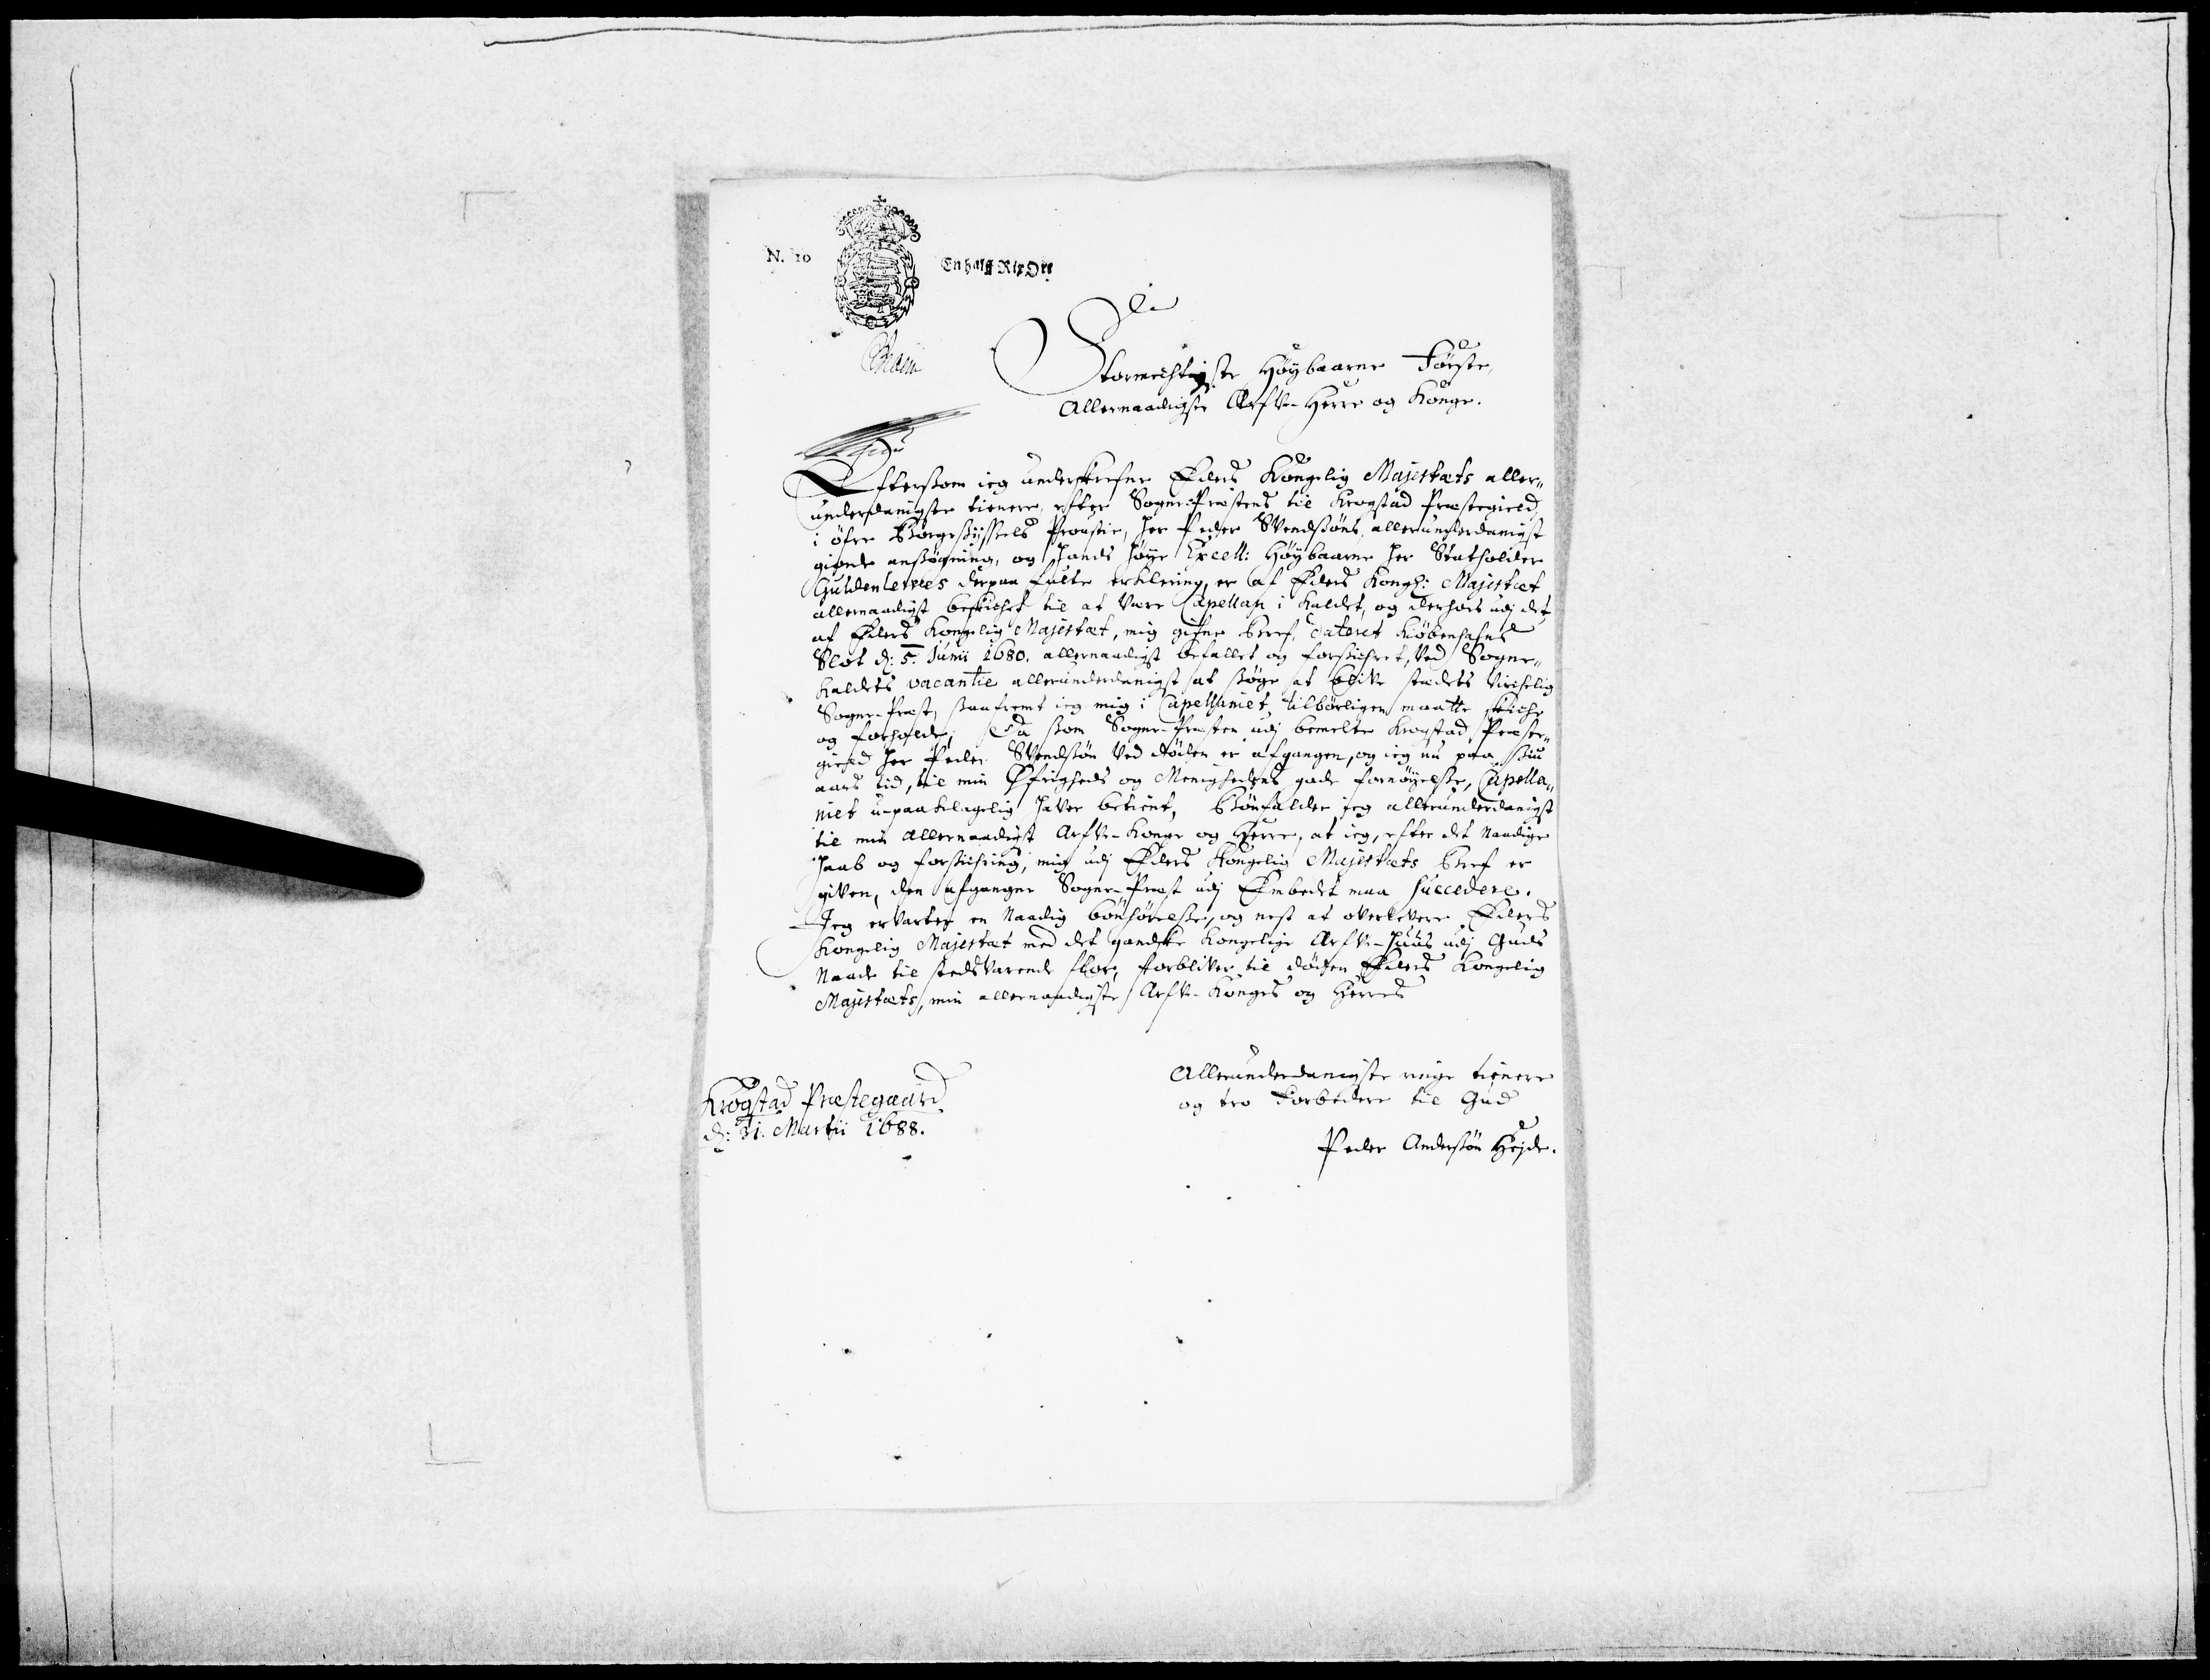 N. 10
En halff Rix Ort
Stormechtigste Høybaarne Første,
Allernaadigste Arfve-Herre og Konge.
Eftersom jeg underskrefne Eders Kongelig Majestæts aller-
underdanigste tienere, efter Sogne-Præstens til Krogstad Præstegield,
i øfre Borgesyssels Proustie, Her Peder Svendsøns, allerunderdanigst
giorde ansøgning, og Hands Høye Excell: Høybaarne Her Statholder
Guldenlewes derpaa fulte erklering, er af Eders Kongl: Majestæt
allernaadigst beskichet til at være Capellan i Kaldet, og derhos udj det
af Eders Kongelig Majestæt, mig gifne Bref, dateret Kiøbenhafns
Slot d: 5. Junii 1680. allernaadigst befallet og forsichret, Ved Sogne-
Kaldets vacantie allerunderdanigst at søge at blive stedets virchelig
Sogne-Præst, saafremt jeg mig i Capellaniet tilbørligen maatte skiche
og forholde; Da som Sogne-Præsten udj bemelte Krogstad Præste-
gield Her Peder Svendsøn Ved døden er afgangen, og jeg nu paa siu
aars tid, til min Øfrigheds og Menighedens gode fornøyelse, Capella-
niet upaaklagelig haver betient, Bønfalder jeg allerunderdanigst
til min Allernaadigst Arfve-Konge og Herre, at jeg, efter det Naadige
Haab og forsichring, mig udj Eders Kongelig Majestæts Bref er
given, den afgangne Sogne-Præst udj Embedet maa succedere.
Jeg ervarter en Naadig bønhørelse, og nest at overlevere Eders
Kongelig Majestæt med det gandske Kongelige Arfve-Huus udj Guds
Naade til stedsvarende flor, forbliver til døden Eders Kongelig
Majestæts, min allernaadigste Arfve-Konges og Herres
Allerunderdanigste ringe tienere
og tro Forbedere til Gud
Peder Andersøn Hejde.
Krogstad Præstegaard
d: 31. Martii 1688.